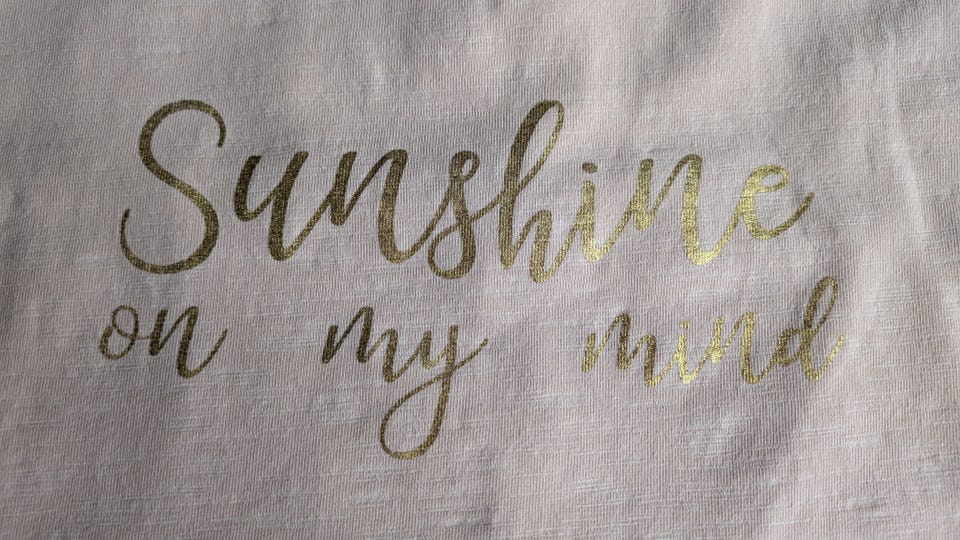 Sunshine
on my mind